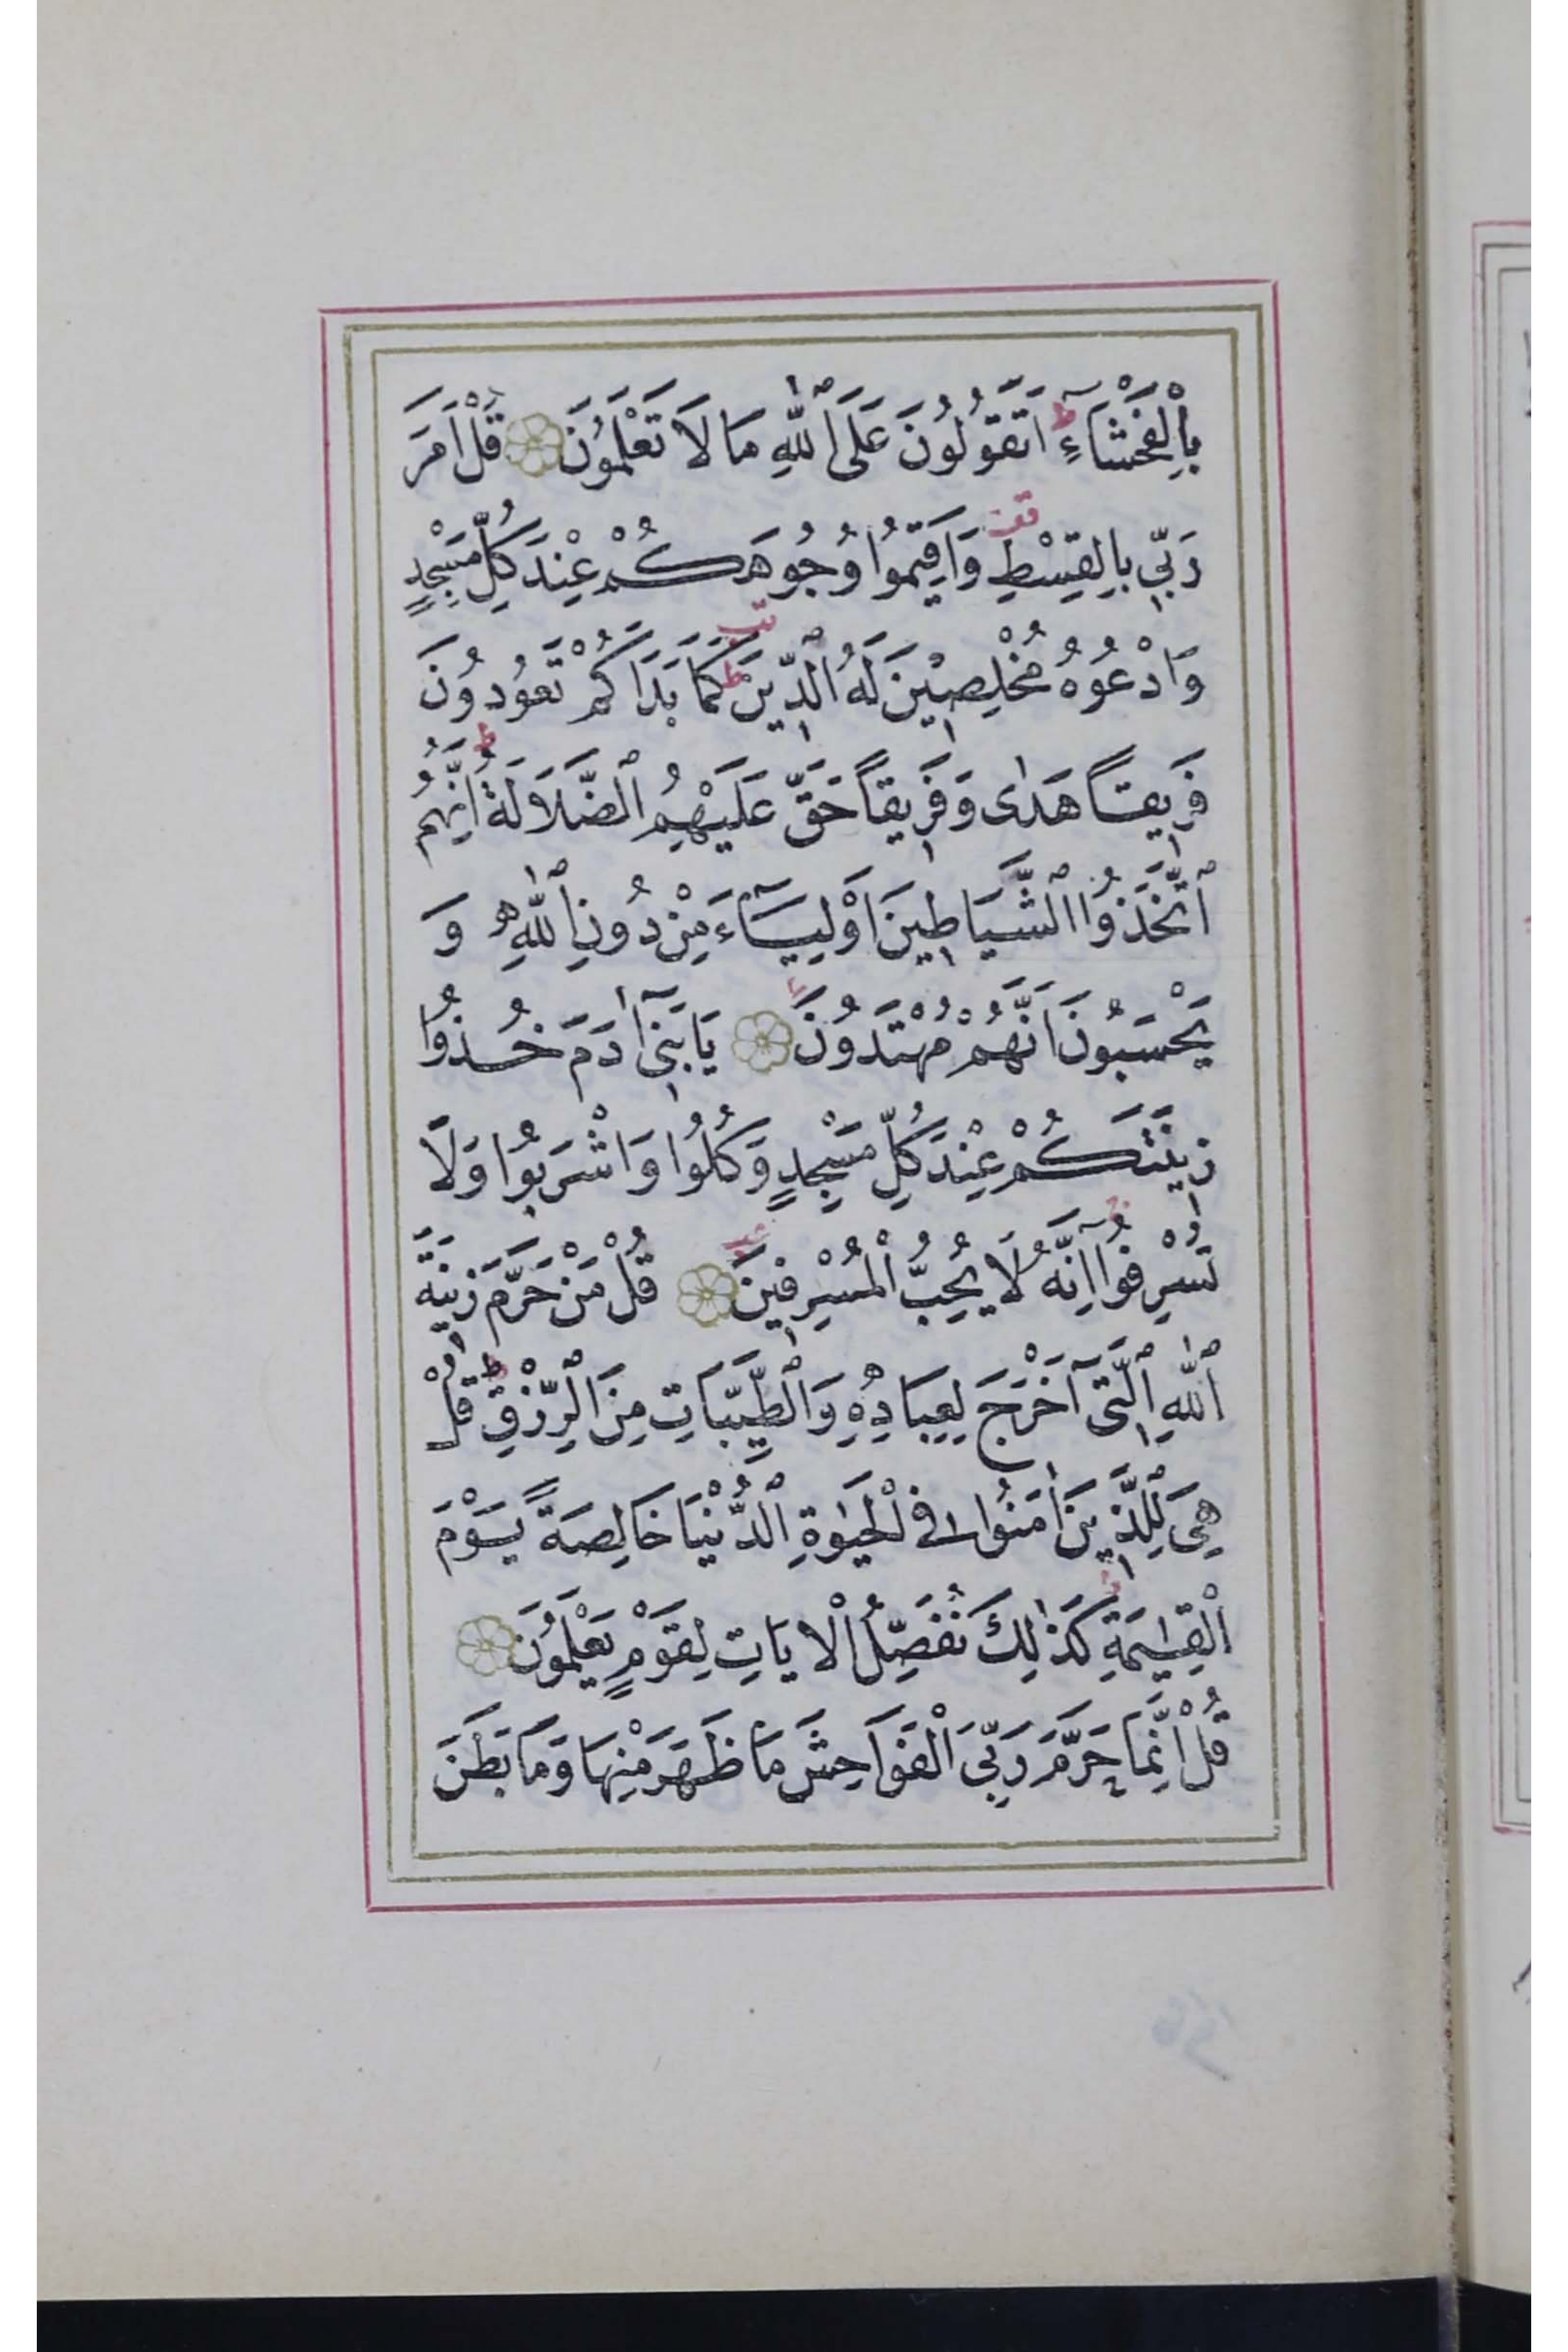 بِالْفَحْشَآءِ ط اَتَقُولُونَ عَلَى ٱللّٰهِ مَا لَا تَعْلَمُونَ قُلْ اَمَرَ
رَبّٖي بِالْقِسْطِ قف وَاَقٖيمُوا وُجُوهَكُمْ عِنْدَ كُلِّ مَسْجِدٍ
وَادْعُوهُ مُخْلِصٖينَ لَهُ ٱلدّٖينَ ط كَمَا بَدَاَكُمْ تَعُودُونَ
فَرٖيقًا هَدٰى وَفَرٖيقًا حَقَّ عَلَيْهِمُ ٱلضَّلَالَةُ ط اِنَّهُمُ
ٱتَّخَذُوا ٱلشَّيَاطٖينَ اَوْلِيَآءَ مِنْ دُونِ ٱللّٰهِ وَ
يَحْسَبُونَ اَنَّهُمْ مُهْتَدُونَ يَا بَنٖٓى اٰدَمَ خُذُوا
زٖينَتَكُمْ عِنْدَ كُلِّ مَسْجِدٍ وَكُلُوا وَاشْرَبُوا وَلَا
تُسْرِفُوا اِنَّهُ لَا يُحِبُّ ٱلْمُسْرِفٖينَ قُلْ مَنْ حَرَّمَ زٖينَةَ
ٱللّٰهِ ٱلَّتٖٓى اَخْرَجَ لِعِبَادِهٖ وَٱلطَّيِّبَاتِ مِنَ ٱلرِّزْقِ ط قُلْ
هِيَ لِلَّذٖينَ اٰمَنُوا فِى ٱلْحَيٰوةِ ٱلدُّنْيَا خَالِصَةً يَوْمَ
ٱلْقِيٰمَةِ ط كَذٰلِكَ نُفَصِّلُ ٱلْاٰيَاتِ لِقَوْمٍ يَعْلَمُونَ
قُلْ اِنَّمَا حَرَّمَ رَبِّيَ ٱلْفَوَاحِشَ مَا ظَهَرَ مِنْهَا وَمَا بَطَنَ